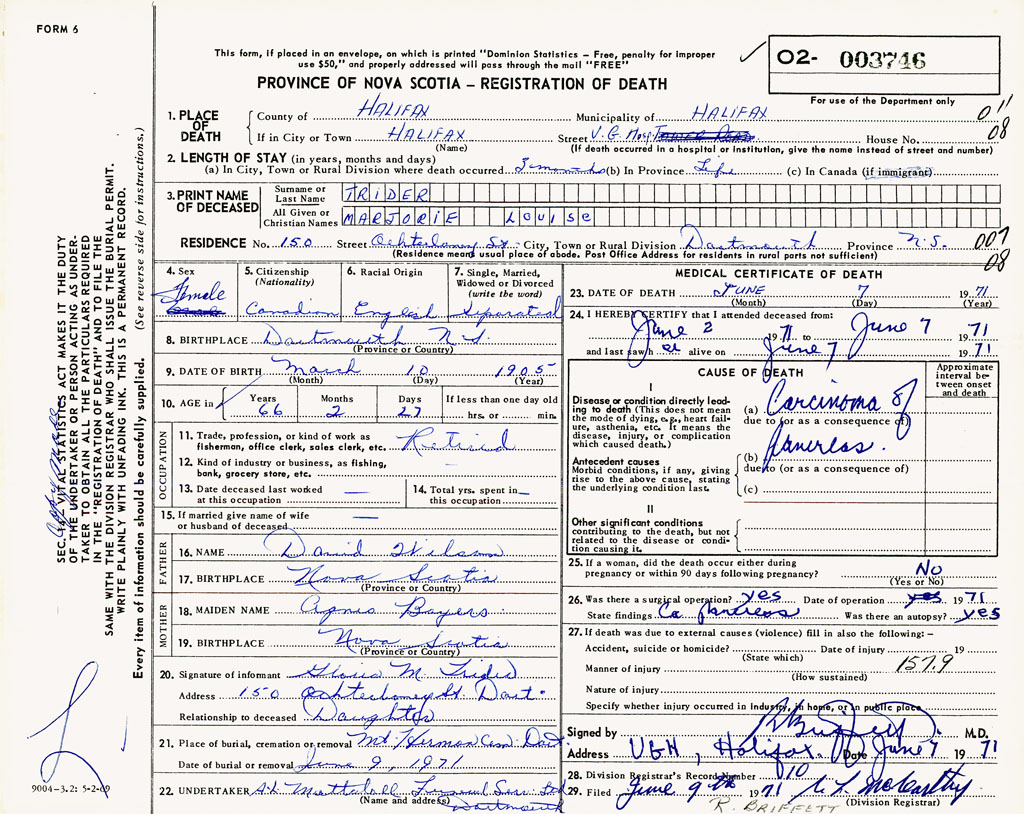 FORM 6
This form, if placed in an envelope, on which is printed "Dominion Statistics – Free, penalty for improper
use $50," and properly addressed will pass through the mail "FREE"
PROVINCE OF NOVA SCOTIA – REGISTRATION OF DEATH
O2- 003746
For use of the Department only
1. PLACE OF DEATH County of HALIFAX Municipality of HALIFAX 011
If in City or Town HALIFAX Street V. G. Hosp. House No. 08
(Name) (If death occurred in a hospital or institution, give the name instead of street and number)
2. LENGTH OF STAY (in years, months and days)
(a) In City, Town or Rural Division where death occurred 3 months (b) In Province Life (c) In Canada (if immigrant)
3. PRINT NAME OF DECEASED Surname or Last Name TRIDER
All Given or Christian Names MARJORIE LOUISE
RESIDENCE No. 150 Street Ochterloney St. City, Town or Rural Division Dartmouth Province N.S. 007
(Residence means usual place of abode. Post Office Address for residents in rural parts not sufficient) 08
4. Sex Female
5. Citizenship (Nationality) Canadian
6. Racial Origin English
7. Single, Married, Widowed or Divorced (write the word) Separated
8. BIRTHPLACE Dartmouth N.S.
(Province or Country)
9. DATE OF BIRTH March 10 1905
(Month) (Day) (Year)
10. AGE in Years 66 Months 2 Days 27 If less than one day old
hrs. or min.
OCCUPATION
11. Trade, profession, or kind of work as fisherman, office clerk, sales clerk, etc. Retired
12. Kind of industry or business, as fishing, bank, grocery store, etc. –
13. Date deceased last worked at this occupation —
14. Total yrs. spent in this occupation —
15. If married give name of wife or husband of deceased —
FATHER
16. NAME David Wilson
17. BIRTHPLACE Nova Scotia
(Province or Country)
MOTHER
18. MAIDEN NAME Agnes Bayers
19. BIRTHPLACE Nova Scotia
(Province or Country)
20. Signature of informant M. Trider
Address 150 Ochterloney St. Dart.
Relationship to deceased Daughter
21. Place of burial, cremation or removal Mt. Hermon Cem. Dart
Date of burial or removal June 9, 1971
22. UNDERTAKER Funeral Ser. Ltd
(Name and address) Dartmouth
MEDICAL CERTIFICATE OF DEATH
23. DATE OF DEATH JUNE 7 1971
(Month) (Day) (Year)
24. I HEREBY CERTIFY that I attended deceased from:
June 2 1971 June 7 1971
and last saw h er alive on June 7 1971
CAUSE OF DEATH
Approximate interval between onset and death
I
Disease or condition directly leading to death (This does not mean the mode of dying, e.g., heart failure, asthenia, etc. It means the disease, injury, or complication which caused death.)
(a) Carcinoma of
due to (or as a consequence of)
Antecedent causes
Morbid conditions, if any, giving rise to the above cause, stating the underlying condition last.
(b) Pancreas.
due to (or as a consequence of)
(c)
II
Other significant conditions contributing to the death, but not related to the disease or condition causing it.
25. If a woman, did the death occur either during pregnancy or within 90 days following pregnancy? No
(Yes or No)
26. Was there a surgical operation? yes Date of operation 1971
State findings Ca pancreas Was there an autopsy? yes
27. If death was due to external causes (violence) fill in also the following: –
Accident, suicide or homicide? Date of injury 19
(State which)
Manner of injury 157.9
(How sustained)
Nature of injury
Specify whether injury occurred in industry, in home, or in public place
Signed by M.D.
Address V G H, Halifax. Date June 7 1971
28. Division Registrar's Record Number 910
29. Filed June 9th 1971 McCarthy
R. BRIFFETT (Division Registrar)
SEC. 14 – VITAL STATISTICS ACT MAKES IT THE DUTY
OF THE UNDERTAKER OR PERSON ACTING AS UNDER-
TAKER TO OBTAIN ALL THE PARTICULARS REQUIRED
IN THE "REGISTRATION OF DEATH" AND TO FILE THE
SAME WITH THE DIVISION REGISTRAR WHO SHALL ISSUE THE BURIAL PERMIT.
WRITE PLAINLY WITH UNFADING INK. THIS IS A PERMANENT RECORD.
Every item of information should be carefully supplied. (See reverse side for instructions.)
9004-3.2: 5-2-69